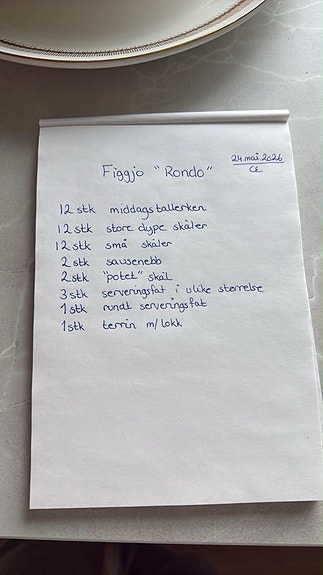 24.mai.2026
CE
Figgjo "Rondo"
12 stk middagstallerken
12 stk store dype skåler
12 stk små skåler
2 stk sausenebb
2 stk "potet" skål
3 stk serveringsfat i ulike størrelse
1 stk rundt serveringsfat
1 stk terrin m/lokk